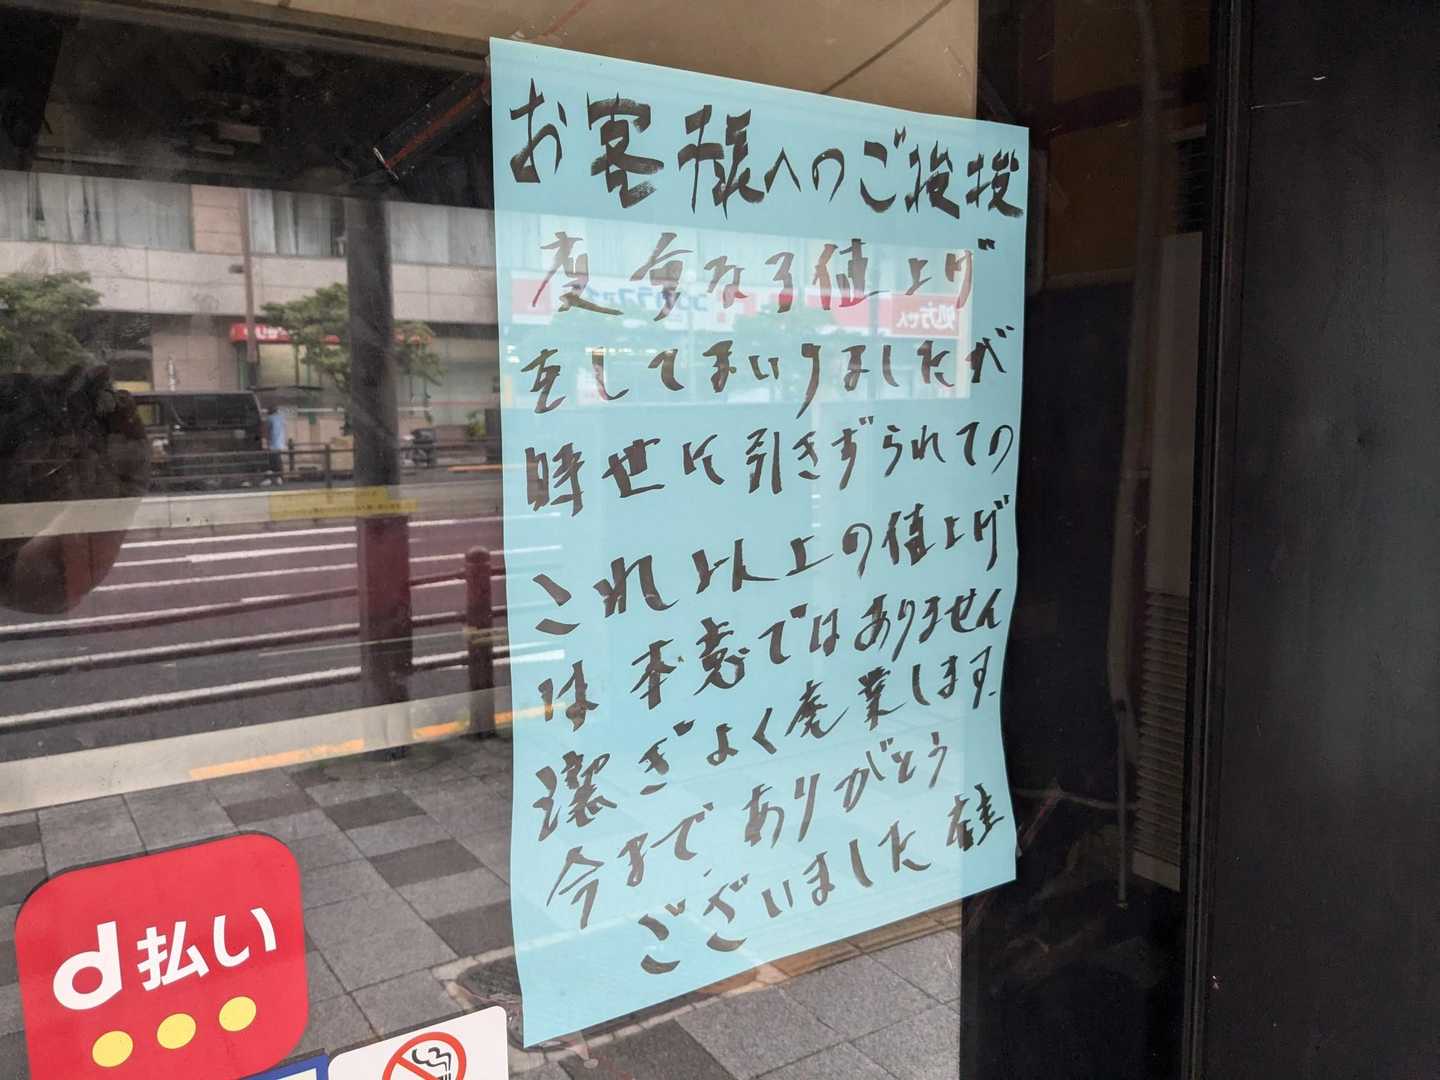 お客様へのご挨拶
度重なる値上げ
をしてまいりましたが
時世に引きずられての
これ以上の値上げ
は本意ではありません
潔ぎよく廃業します.
今まで、ありがとう
ございました
d払い
処方せん